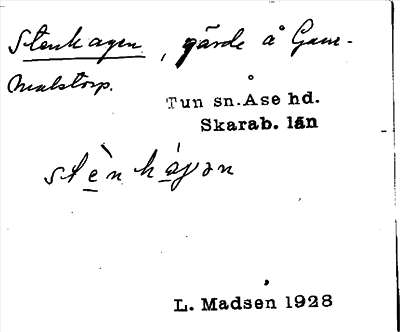 Stenhagen, gärde å Gam-
malstorp.
Tun sn. Åse hd.
Skarab. län
stènháɡan
L. Madsen 1928